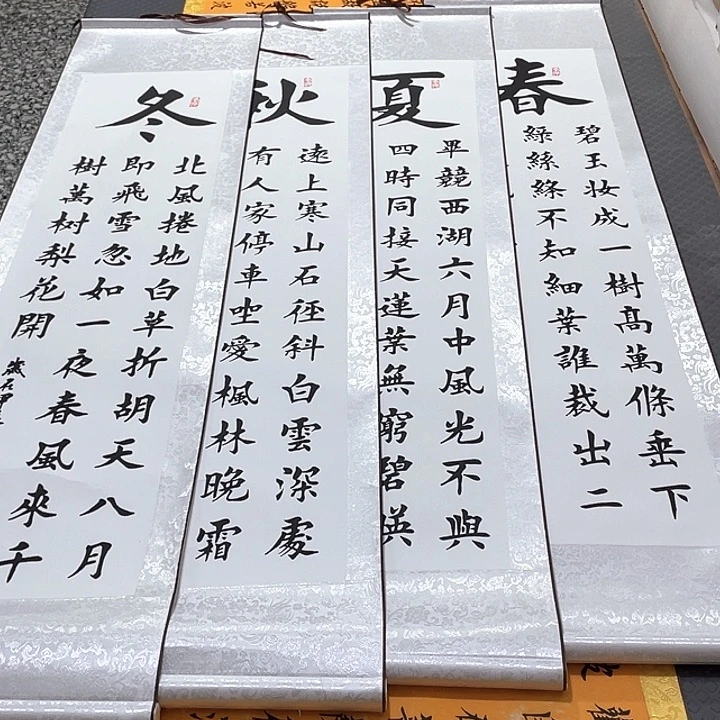 春
碧玉妆成一樹高萬條垂下
緑絲絛不知細葉誰裁出二
夏
畢競西湖六月中風光不與
四時同接天蓮葉無窮碧暎
秋
遠上寒山石徑斜白雲深處
有人家停車坐愛楓林晚霜
冬
北風捲地白草折胡天八月
即飛雪忽如一夜春風來千
樹萬树梨花開
歲在甲